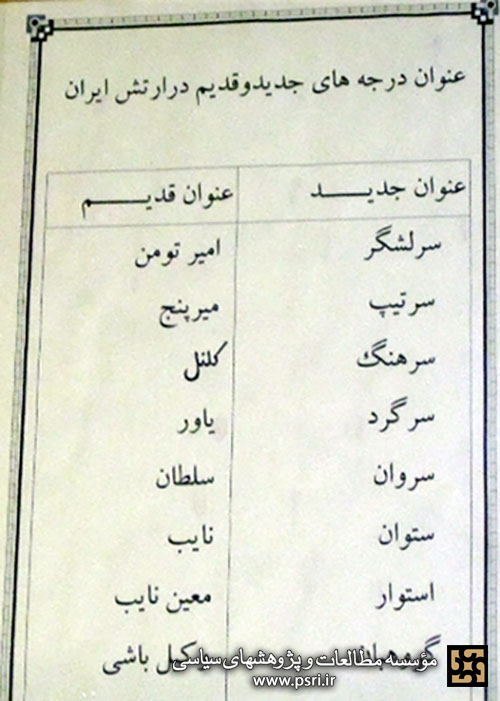 عنوان درجه های جدیدوقدیم درارتش ایران
عنوان جدیـــــد عنوان قدیـــــم
سرلشگر امیر تومن
سرتیپ میرپنج
سرهنگ کلنل
سرگرد یاور
سروان سلطان
ستوان نایب
استوار معین نایب
باشی
مؤسسه مطالعات و پژوهشهای سیاسی
www.psri.ir